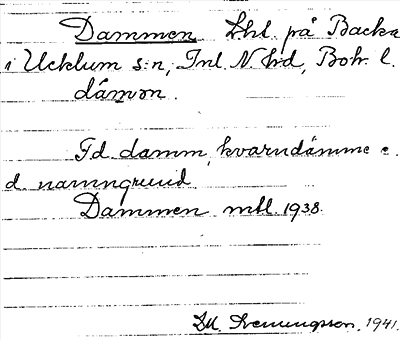 Dammen Lht. på Backa
i Ucklum s:n, Inl. N. hd, Boh. l.
dámən.
Fd. damm, kvarndämme e.
d. namngrund.
Dammen mtl. 1938.
1941.